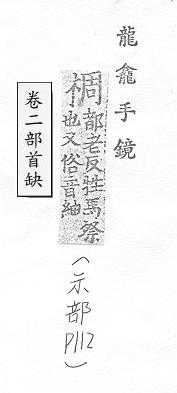 龍龕手鏡
禂都老反牲馬祭
也又俗音紬
(示部P112)
卷二部首缺